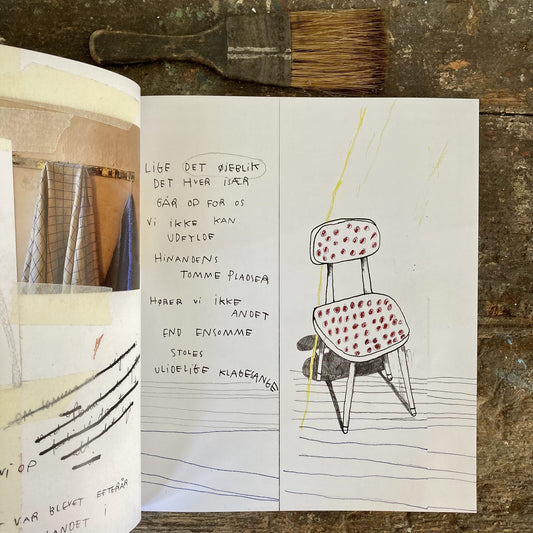 VI OP
T VAR BLEVET EFTERÅR
LANDET I
LIGE DET ØJEBLIK
DET HVER ISÆR
GÅR OP FOR OS
VI IKKE KAN
UDFYLDE
HINANDENS
TOMME PLADSER
HØRER VI IKKE
ANDET
END ENSOMME
STOLES
ULIDELIGE KLAGESANGE